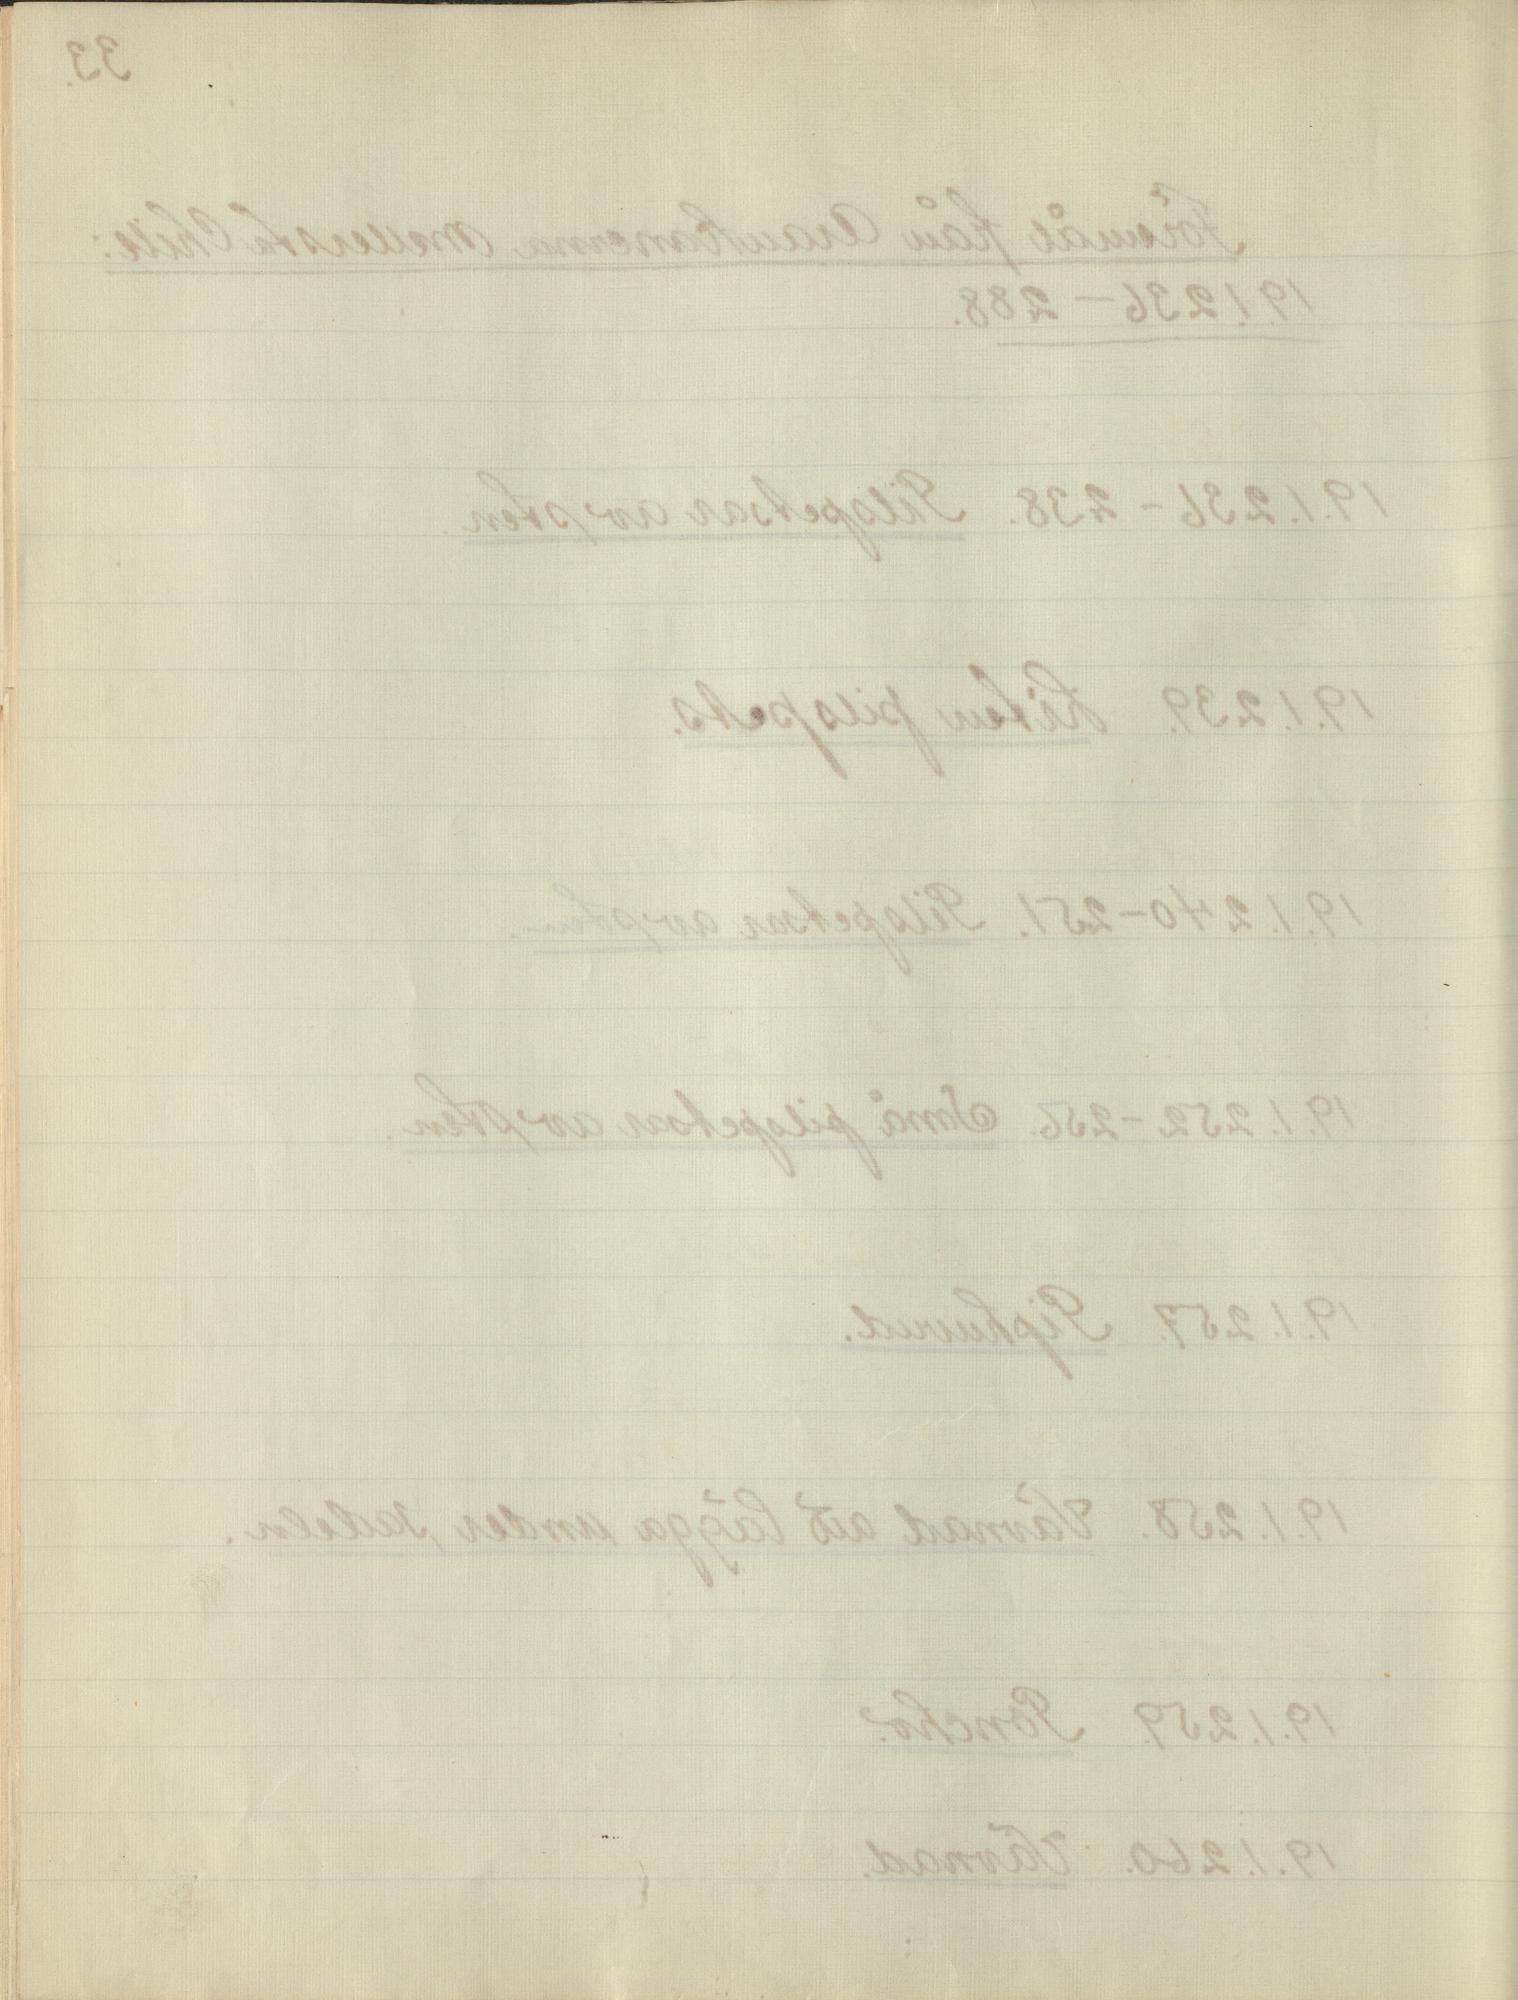 33.
Föremål från Araukanerna mellersta Chile:
19.1.236 – 288.
19.1.236 – 238. Pilspetsar av sten.
19.1.239. Liten pilspets.
19.1.240–251. Pilspetsar av sten.
19.1.252–256. Små pilspetsar av sten.
19.1.257. Piphuvud.
19.1.258. Vävnad att lägga under sadeln.
19.1.259. Poncho.
19.1.260. Vävnad.